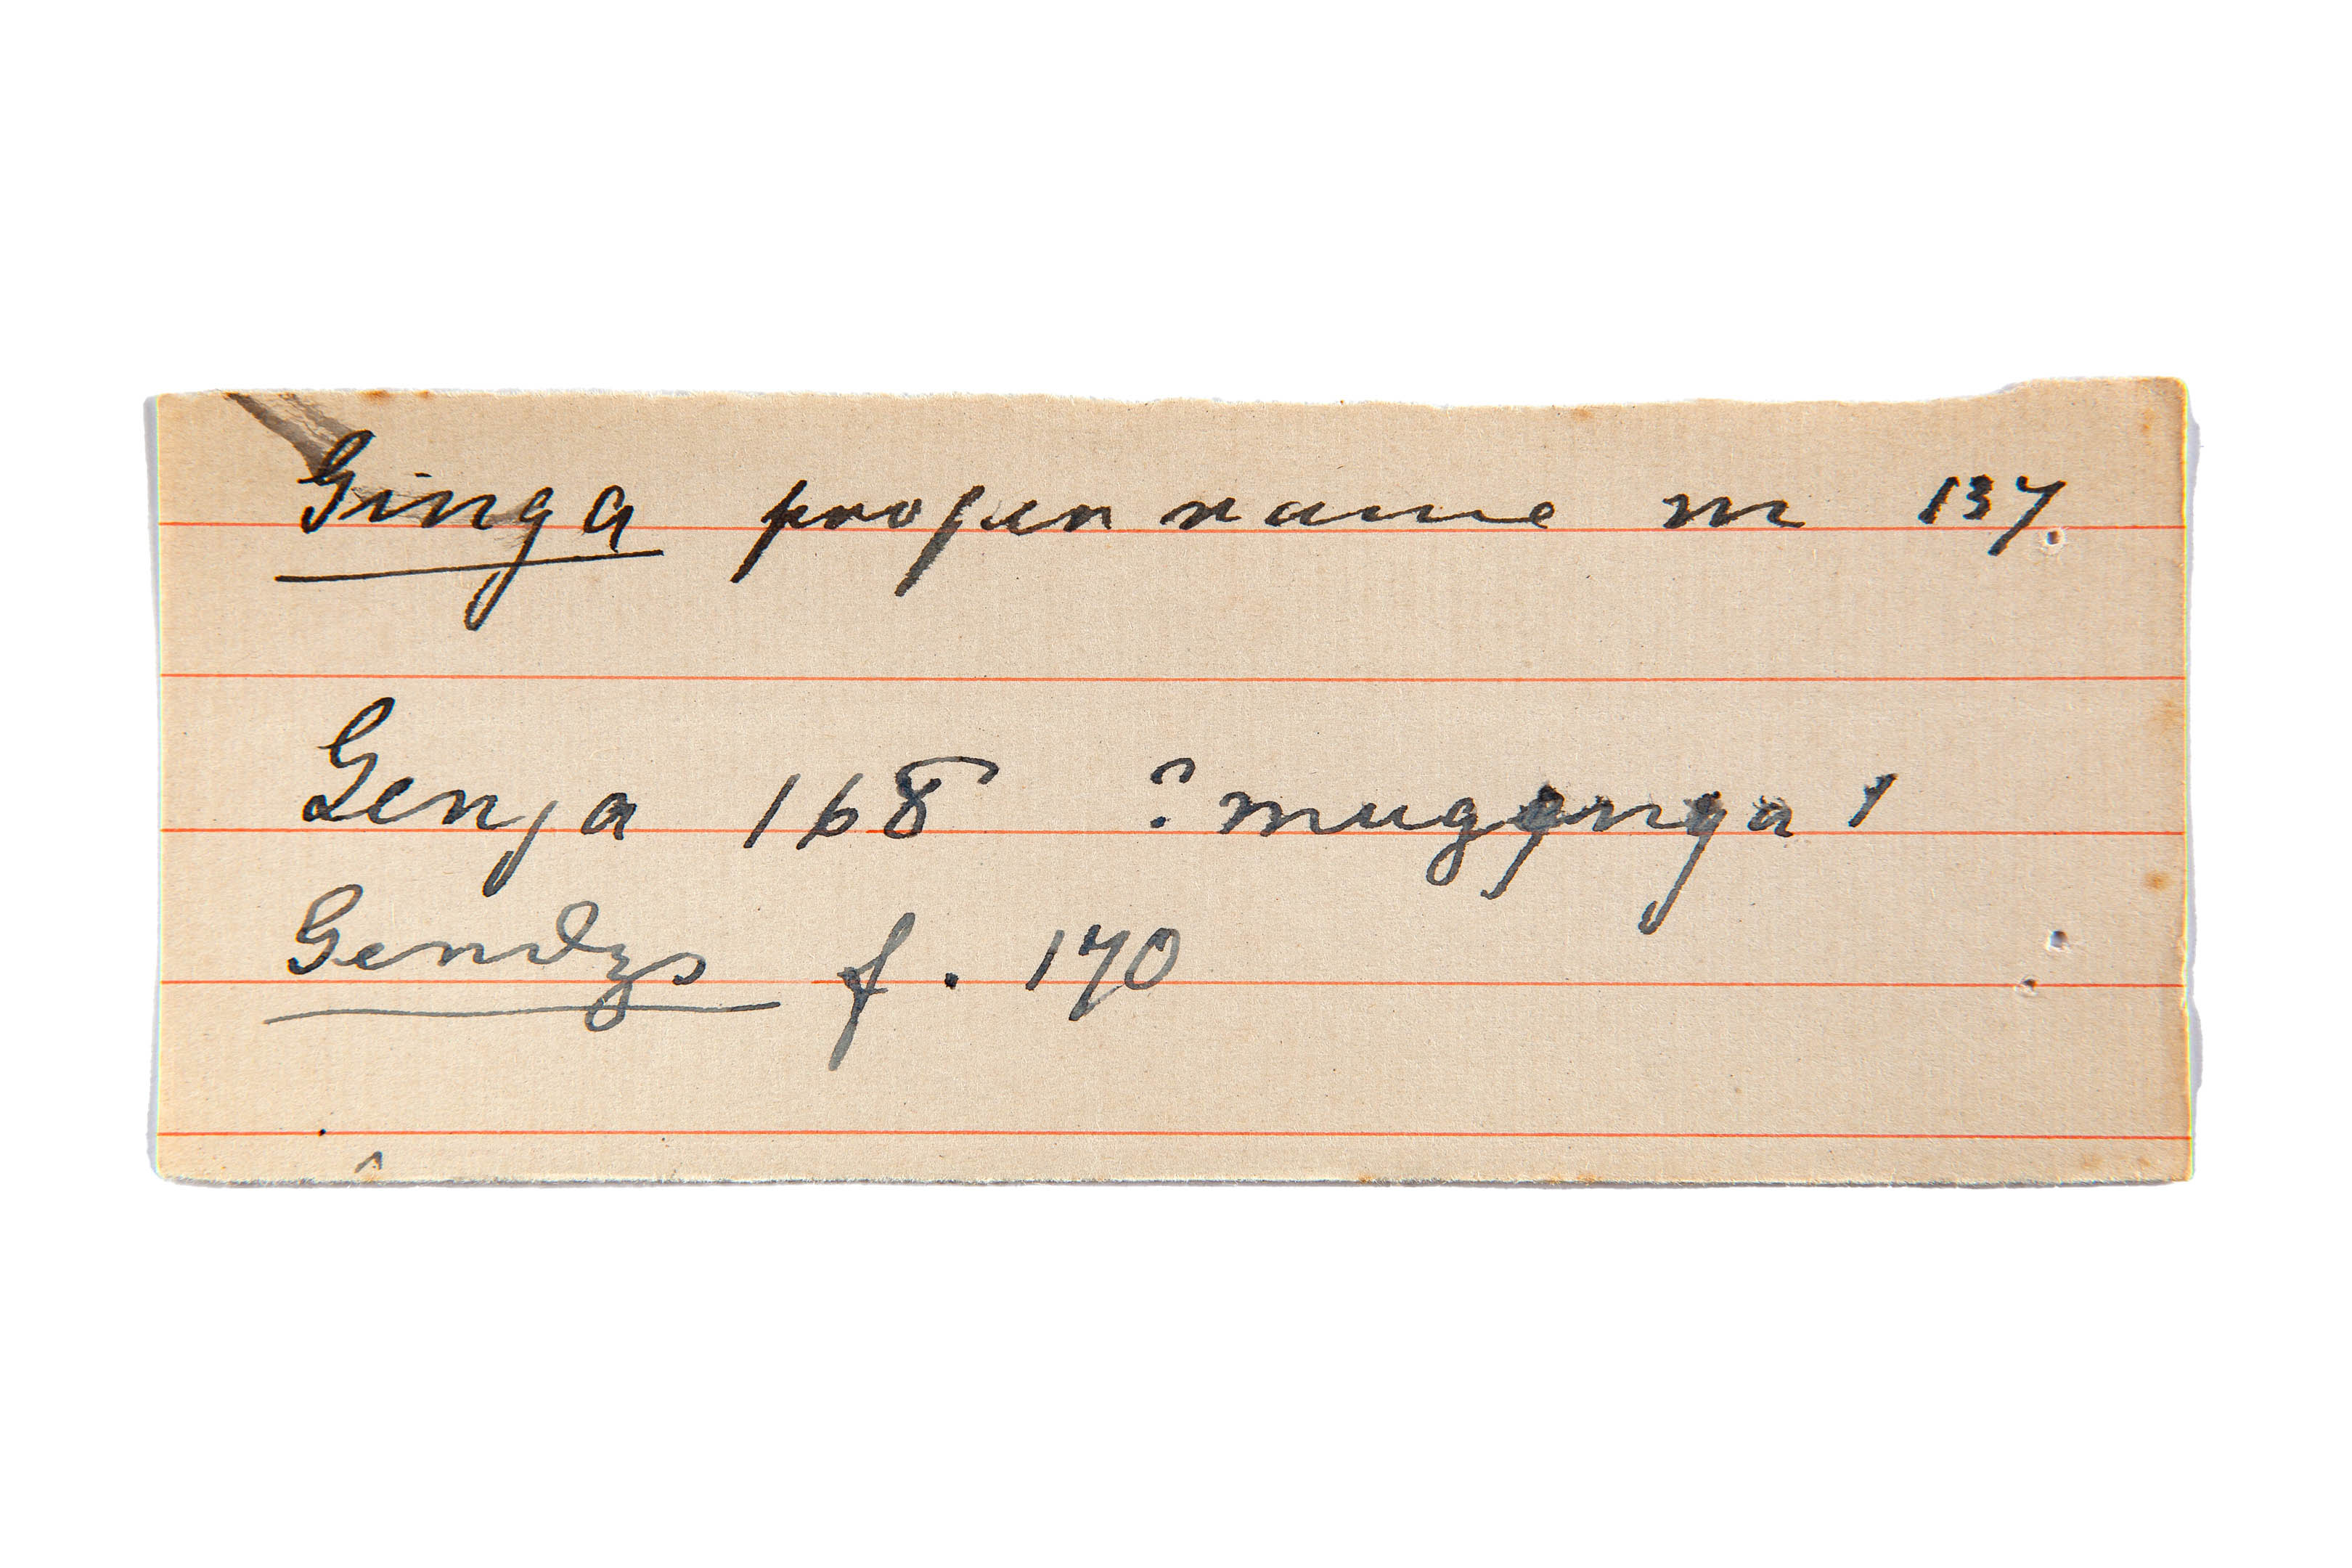 Ginga proper name m 137
Genga 168 ? mugenga 1
Gendzo f. 170